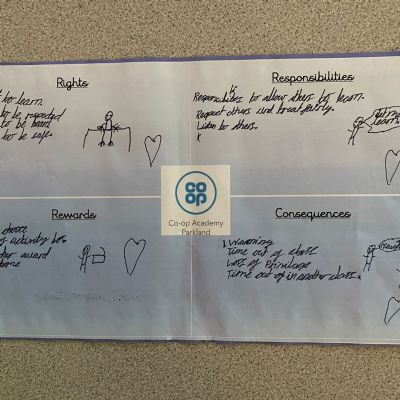 Rights
to learn.
to be respected
to be heard
to be safe.
Responsibilities
to allow others to learn.
Respect others and treat fairly.
Listen to others.
co
op
Co-op Academy
Parkland
Rewards
choice
activity box
award
Consequences
1 Warning
Time out of class
Loss of Privilage
Time out of in another class.